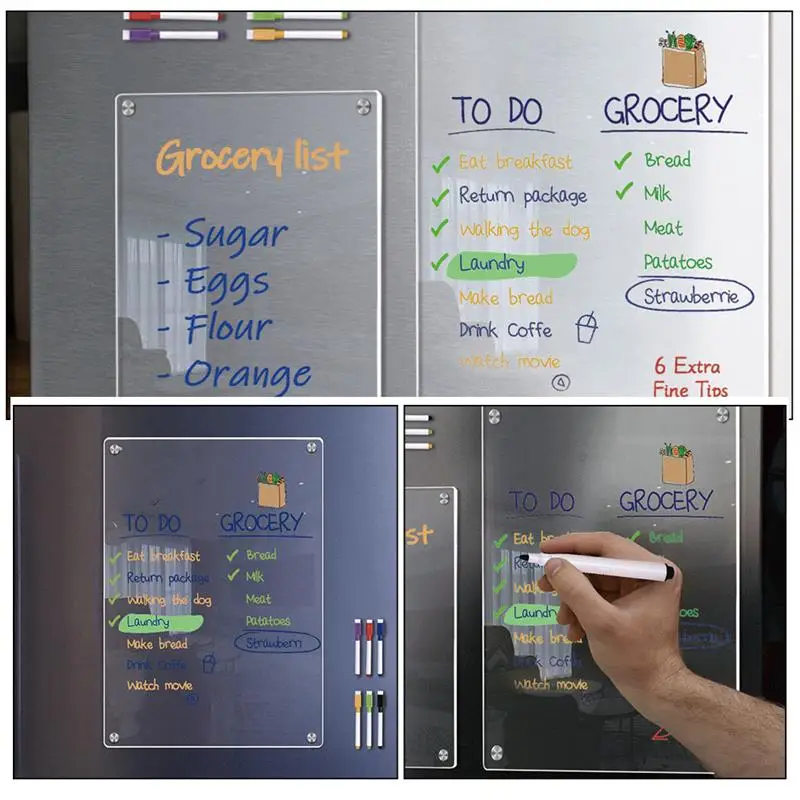 Grocery list
- Sugar
- Eggs
- Flour
- Orange
TO DO
Eat breakfast
Return package
Walking the dog
Laundry
Make bread
Drink Coffe
Watch movie
GROCERY
Bread
Milk
Meat
Patatoes
Strawberrie
6 Extra
Fine Tips
TO DO
Eat breakfast
Return package
Walking the dog
Laundry
Make bread
Drink Coffe
Watch movie
GROCERY
Bread
Milk
Meat
Patatoes
Strawberri
st
TO DO
Eat
Laundry
Make
Drink Coff
Watch movie
GROCERY
Bread
oes